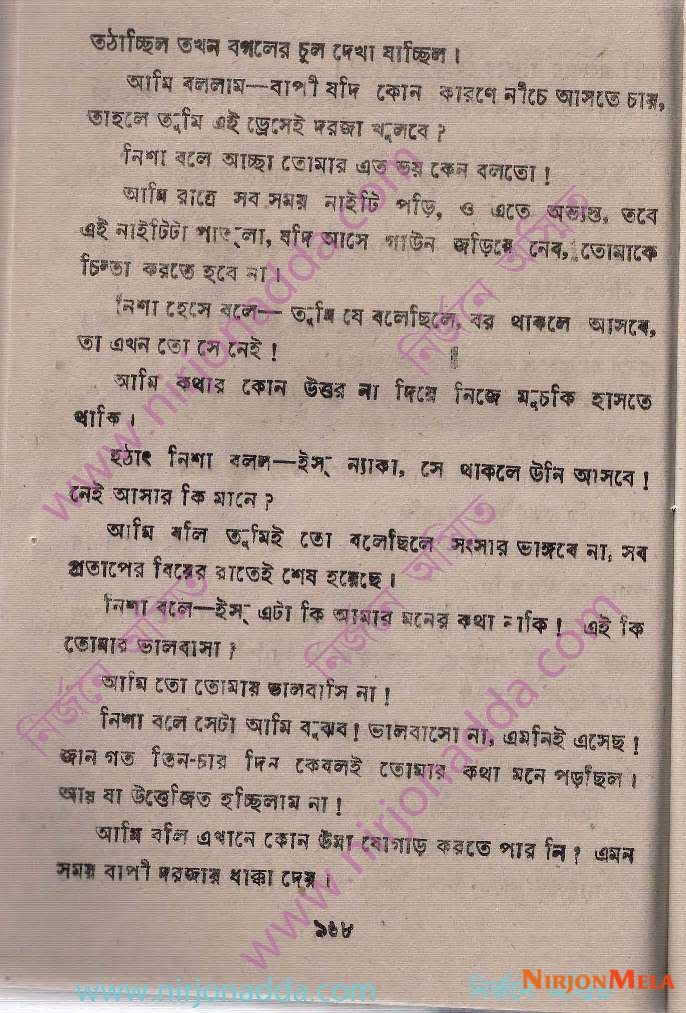 তঠাচ্ছিল তখন বগলের চুল দেখা যাচ্ছিল।
আমি বললাম—বাপী যদি কোন কারণে নীচে আসতে চায়,
তাহলে তুমি এই ড্রেসেই দরজা খুলবে ?
নিশা বলে আচ্ছা তোমার এত ভয় কেন বলতো !
আমি রাত্রে সব সময় নাইটি পড়ি, ও এতে অভ্যস্ত, তবে
এই নাইটিটা পাতলা, যদি আসে গাউন জড়িয়ে নেব, তোমাকে
চিন্তা করতে হবে না।
নিশা হেসে বলে— তুমি যে বলেছিলে, বর থাকলে আসবে,
তা এখন তো সে নেই !
আমি কথার কোন উত্তর না দিয়ে নিজে মুচকি হাসতে
থাকি।
হঠাৎ নিশা বলল—ইস্ ন্যাকা, সে থাকলে উনি আসবে !
নেই আসার কি মানে ?
আমি বলি তুমিই তো বলেছিলে সংসার ভাঙ্গবে না, সব
প্রতাপের বিয়ের রাতেই শেষ হয়েছে।
নিশা বলে—ইস্ এটা কি আমার মনের কথা নাকি ! এই কি
তোমার ভালবাসা ?
আমি তো তোমায় ভালবাসি না !
নিশা বলে সেটা আমি বুঝব ! ভালবাসো না, এমনিই এসেছ !
জান গত তিন-চার দিন কেবলই তোমার কথা মনে পড়ছিল।
আর যা উত্তেজিত হচ্ছিলাম না !
আমি বলি এখানে কোন উমা যোগাড় করতে পার নি ? এমন
সময় বাপী দরজায় ধাক্কা দেয়।
১৬৮
www.nirjonadda.com
নির্জনে অসিত
NIRJONMELA